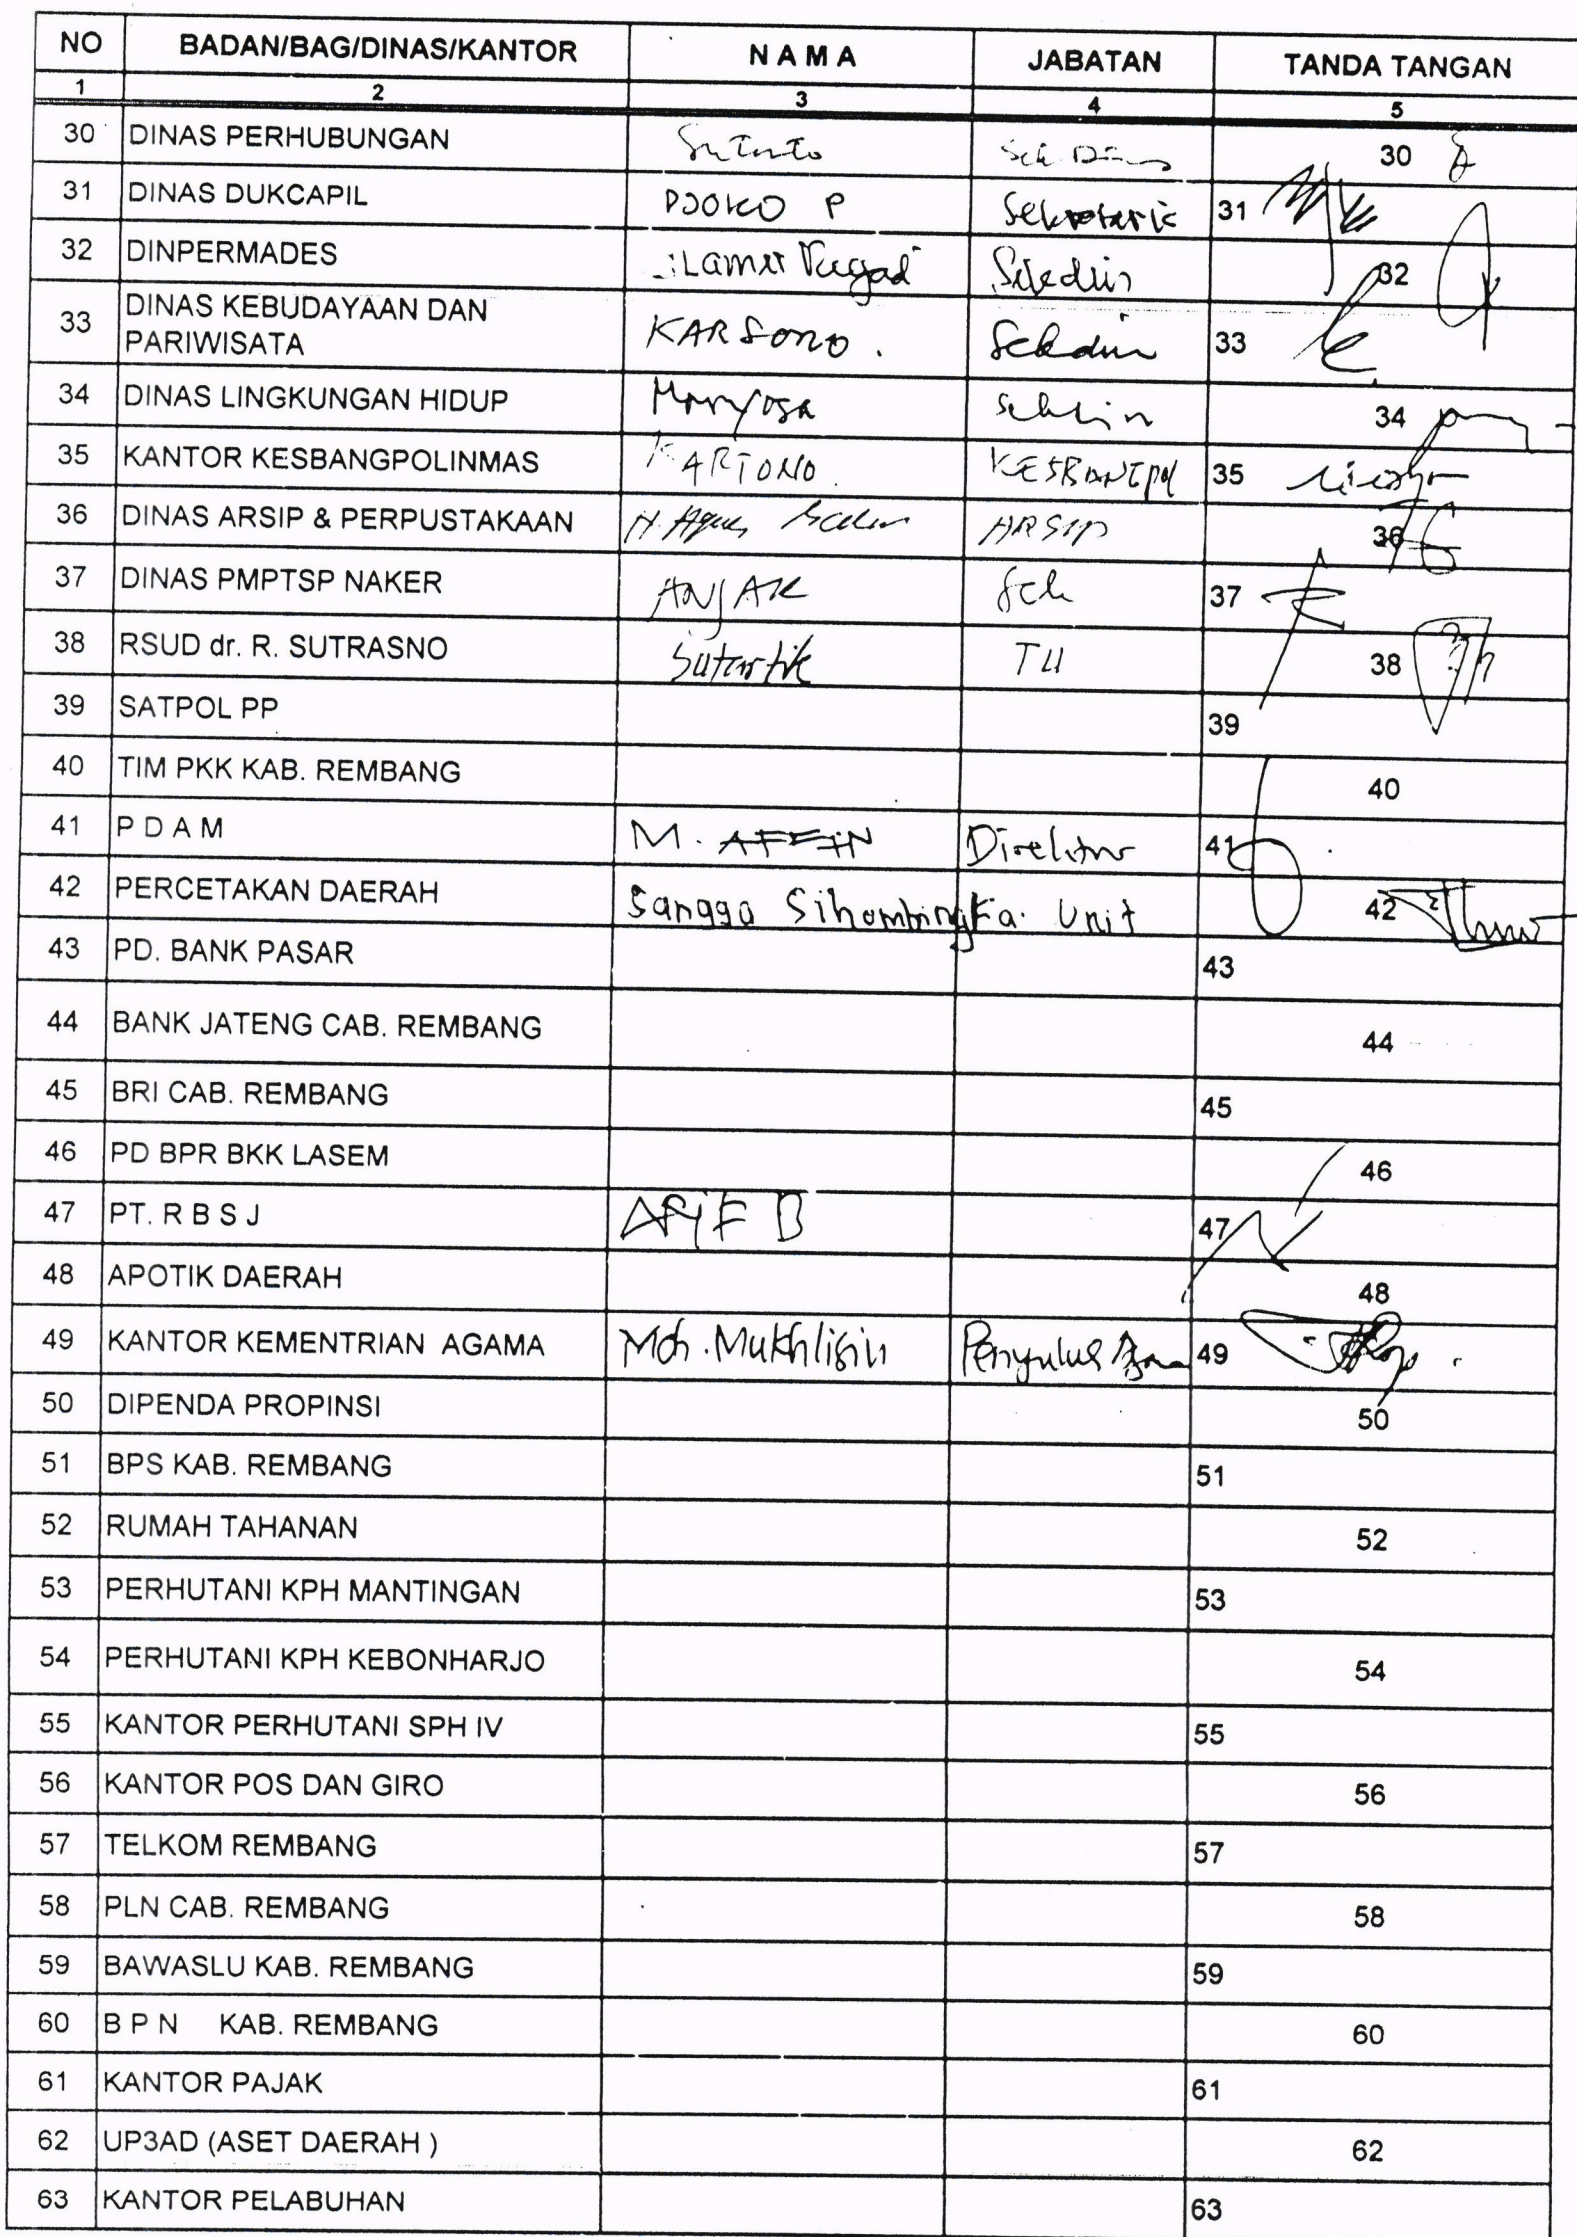 NO BADAN/BAG/DINAS/KANTOR N A M A JABATAN TANDA TANGAN
1 2 3 4 5
30 DINAS PERHUBUNGAN 30
31 DINAS DUKCAPIL DJOKO P Sekretaris 31
32 DINPERMADES 32
33 DINAS KEBUDAYAAN DAN
PARIWISATA KARSONO. Sekdin 33
34 DINAS LINGKUNGAN HIDUP 34
35 KANTOR KESBANGPOLINMAS KARTONO. KESBANGPOL 35
36 DINAS ARSIP & PERPUSTAKAAN H. Agus ARSIP 36
37 DINAS PMPTSP NAKER ANJAR Sek 37
38 RSUD dr. R. SUTRASNO TU 38
39 SATPOL PP 39
40 TIM PKK KAB. REMBANG 40
41 P D A M M. AFFIN Direktur 41
42 PERCETAKAN DAERAH Sanggo Sihombing Ka. Unit 42
43 PD. BANK PASAR 43
44 BANK JATENG CAB. REMBANG 44
45 BRI CAB. REMBANG 45
46 PD BPR BKK LASEM 46
47 PT. R B S J ARIF B 47
48 APOTIK DAERAH 48
49 KANTOR KEMENTRIAN AGAMA Moh. Mukhlisin Penyuluh 49
50 DIPENDA PROPINSI 50
51 BPS KAB. REMBANG 51
52 RUMAH TAHANAN 52
53 PERHUTANI KPH MANTINGAN 53
54 PERHUTANI KPH KEBONHARJO 54
55 KANTOR PERHUTANI SPH IV 55
56 KANTOR POS DAN GIRO 56
57 TELKOM REMBANG 57
58 PLN CAB. REMBANG 58
59 BAWASLU KAB. REMBANG 59
60 B P N KAB. REMBANG 60
61 KANTOR PAJAK 61
62 UP3AD (ASET DAERAH ) 62
63 KANTOR PELABUHAN 63